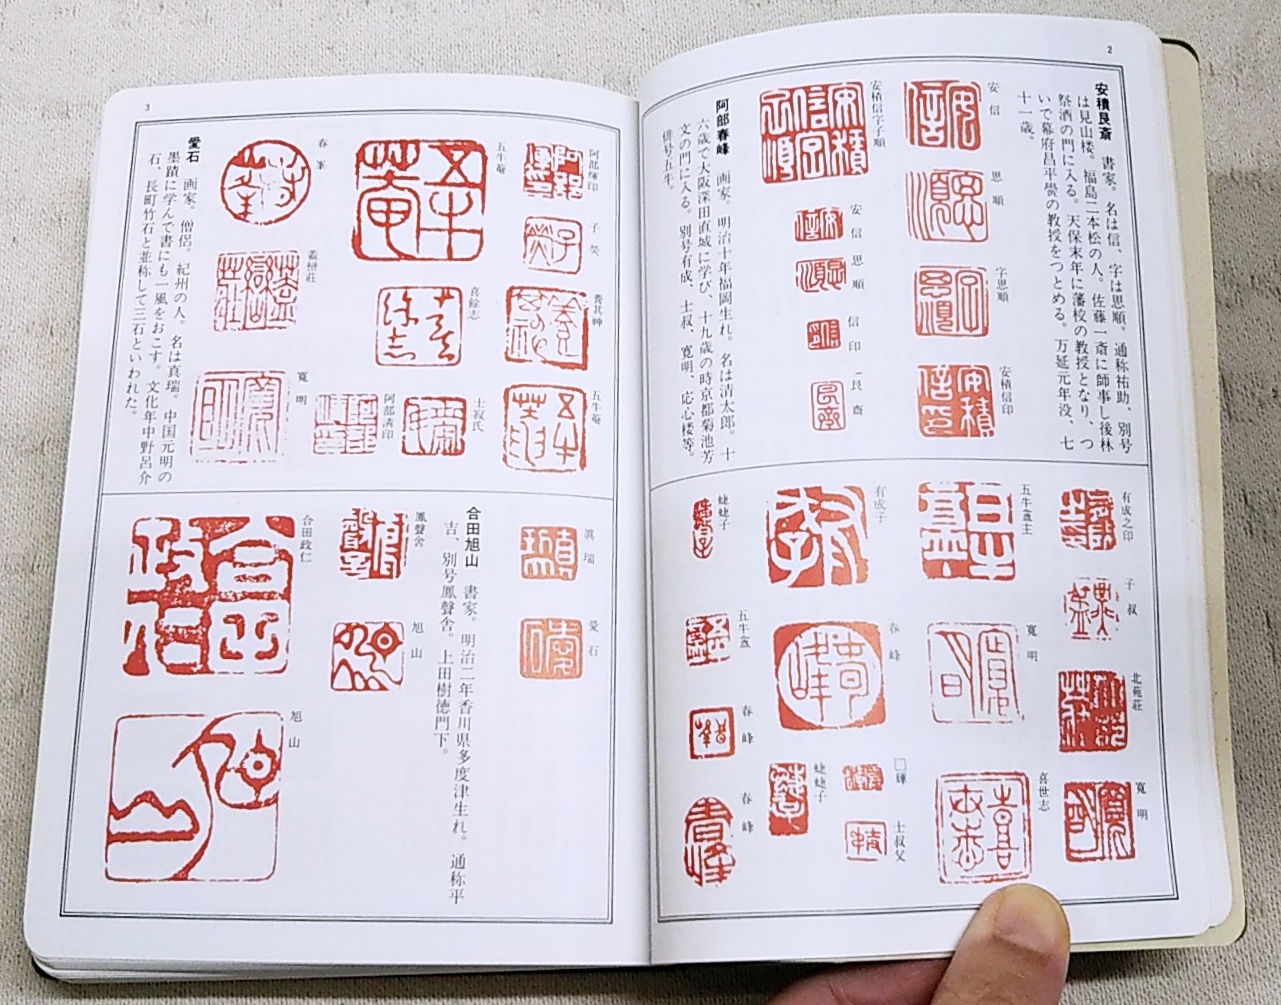 2
安積艮斎　書家。名は信、字は思順。通称祐助、別号
は見山楼。福島二本松の人。佐藤一斎に師事し後林
祭酒の門に入る。天保末年に藩校の教授となり、つ
いで幕府昌平黌の教授をつとめる。万延元年没、七
十一歳。
安信
思順
字思順
安積信印
安積信字子順
安信
思順
信印
艮斎
阿部春峰　画家。明治十年福岡生れ。名は清太郎。十
六歳で大阪深田直城に学び、十九歳の時京都菊池芳
文の門に入る。別号有成、士叔、寛明、応心楼等。
俳号五牛。
有成之印
子叔
北苑荘
寛明
五牛盦主
寛明
喜世志
有成子
春峰
□暉
士叔父
蛙蛙子
蛙蛙子
五牛盦
春峰
春峰
3
阿部煇印
子癸
養其神
五牛菴
五牛菴
喜餘志
士叔氏
阿部清印
春峯
蓋榯荘
寛明
愛石　画家。僧侶。紀州の人。名は真瑞。中国元明の
墨蹟に学んで書にも一風をおこす。文化年中野呂介
石、長町竹石と並称して三石といわれた。
眞瑞
愛石
合田旭山　書家。明治二年香川県多度津生れ。通称平
吉、別号鳳聲舎。上田樹徳門下。
鳳聲舍
旭山
合田政仁
旭山